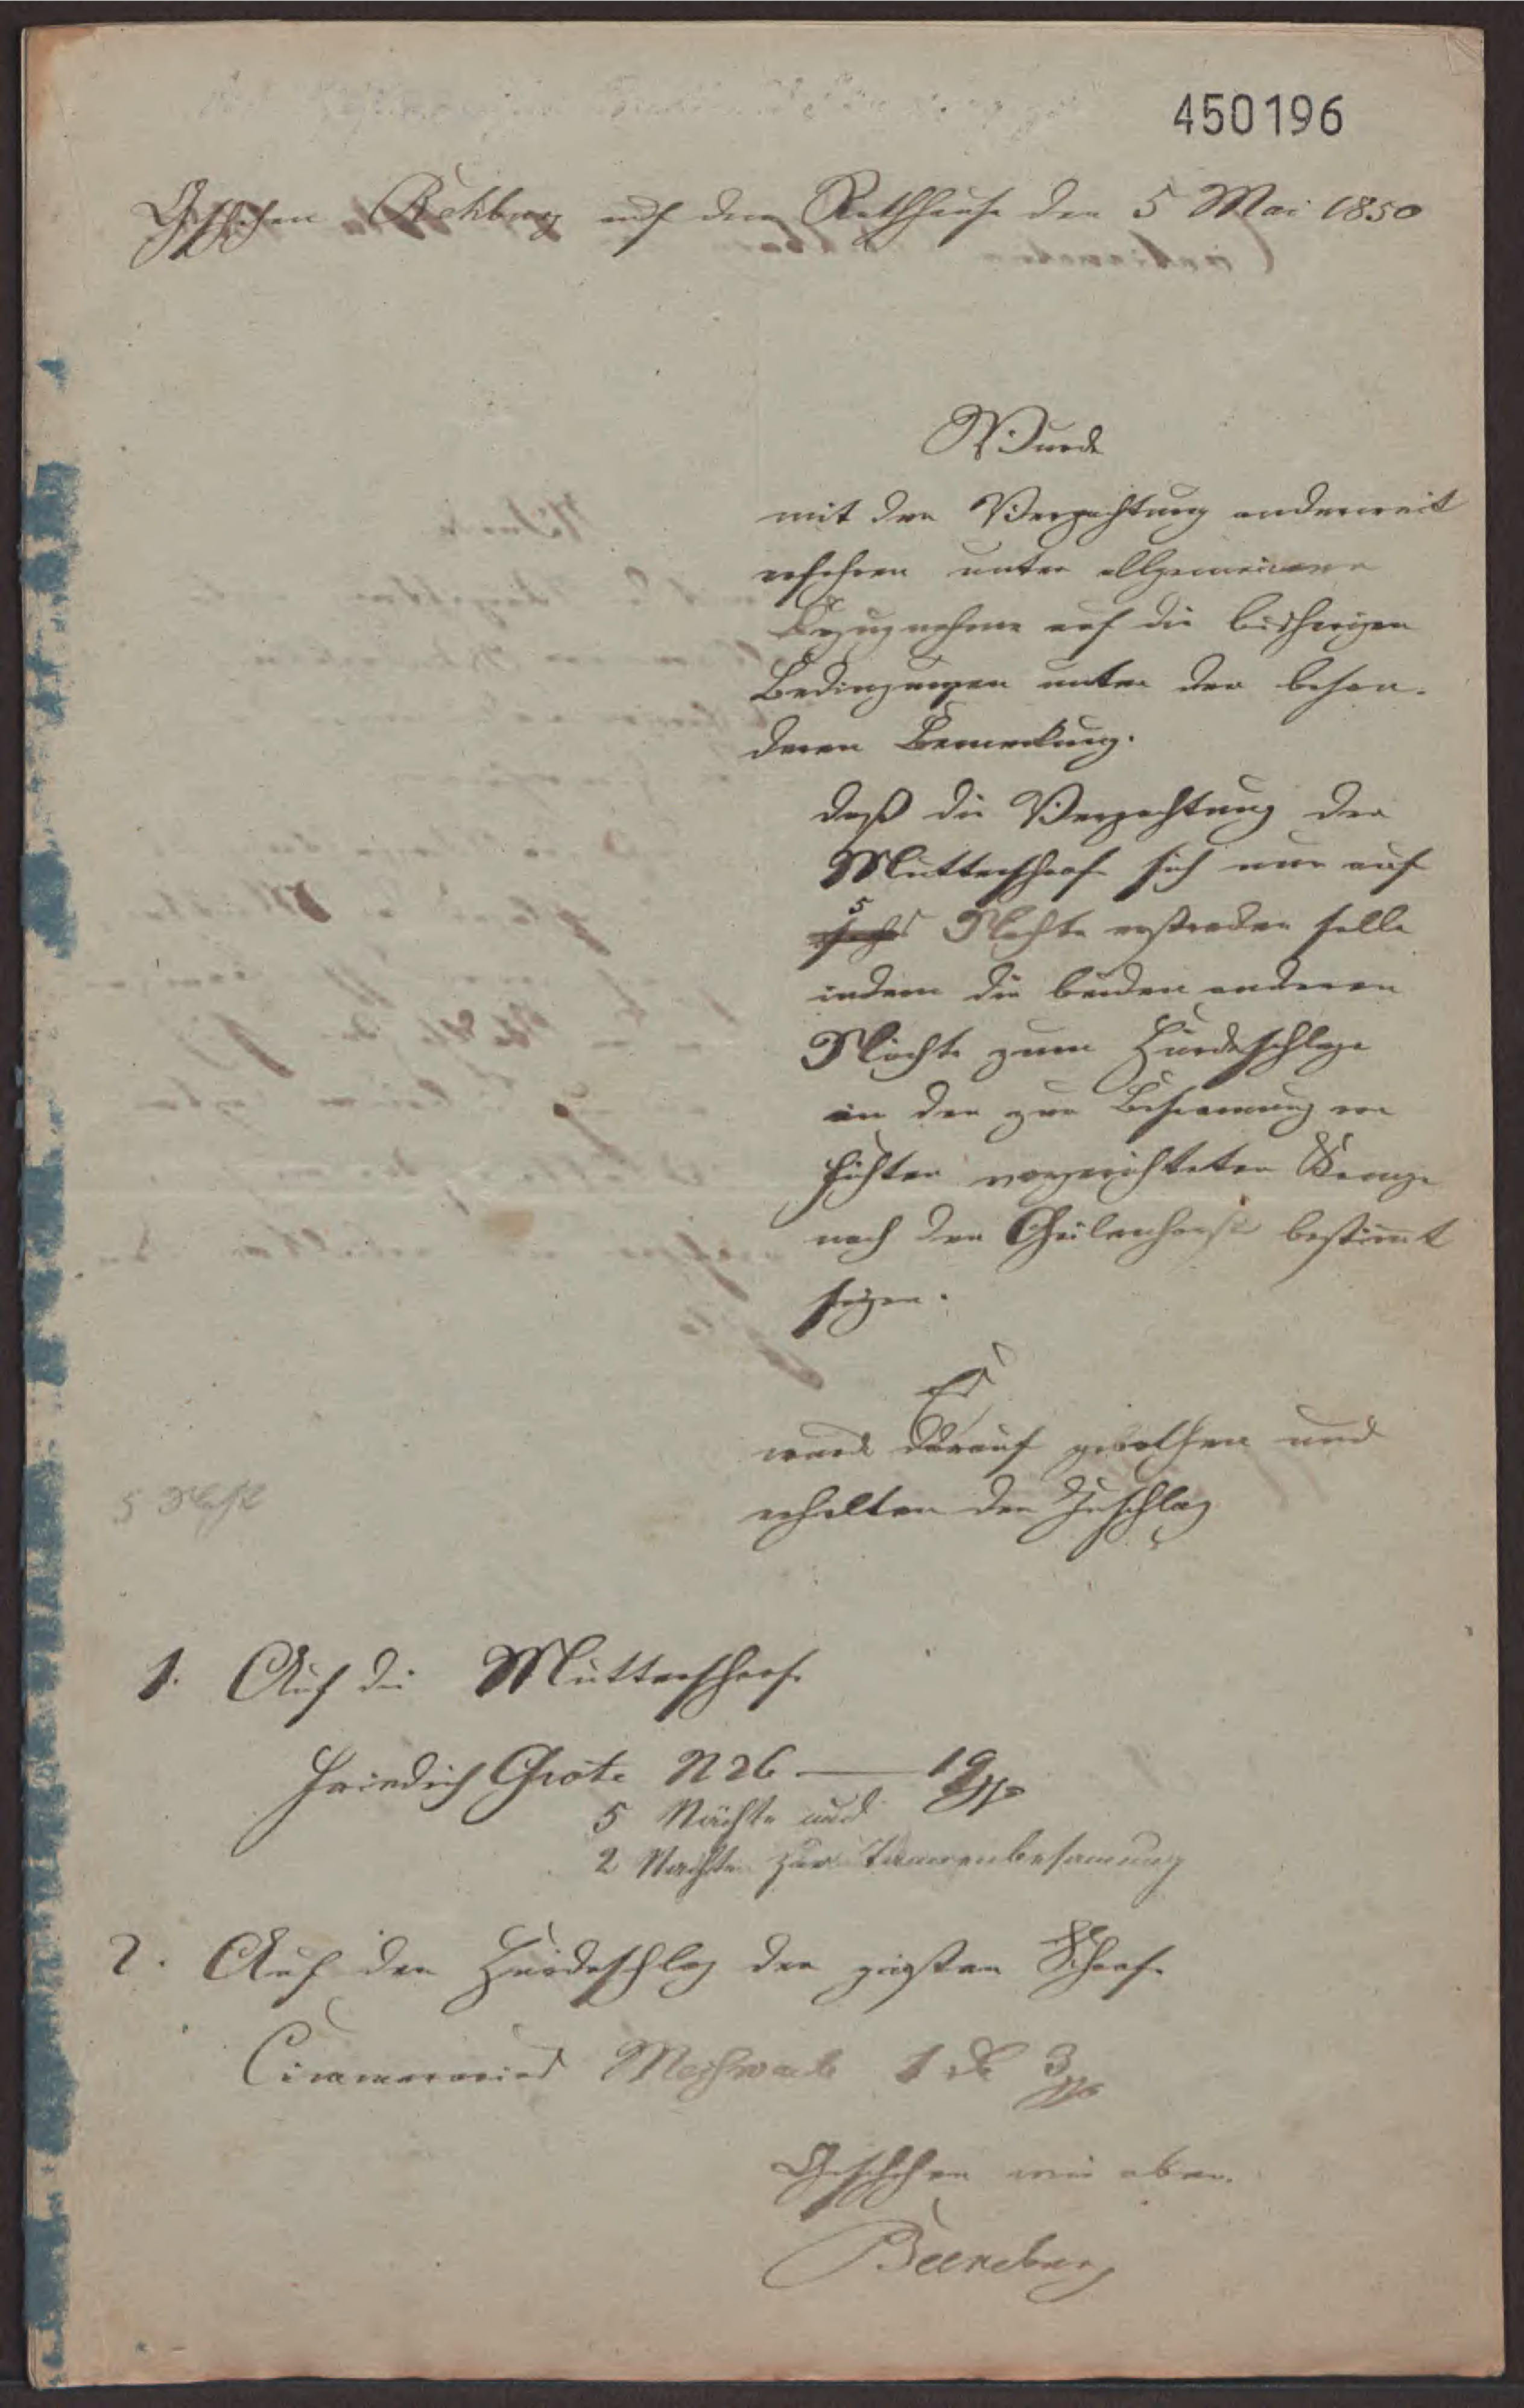 450196
Geschehen Rehburg auf dem Rathhause den 5 Mai 1850
Wurde
mit der Verpachtung anderweit
verfahren unter allgemeiner
Bezugnahme auf die bisherigen
Bedingungen unter der beson-
deren Bemerkung.
daß die Verpachtung der
Mutterschafe sich nur auf
5
sechs Nächte erstrecken solle
indem die beiden anderen
Nächte zum Hürdeschlage
in der zur Besamung von
Fichten vorgerichteten
nach der bestimmt
seyen.
Es
wurde darauf gebothen und
erhalten den Zuschlag
5 Nächte
1. Auf die Mutterschafe
Friedrich Grote N 26 — 19 ggr
5 Nächte und
2 Nächte zur Tannenbesamung
2. Auf den Hürdeschlag der güsten Schafe
Meßwarb 1 rℓ 3 ggr
Geschehen wie oben.